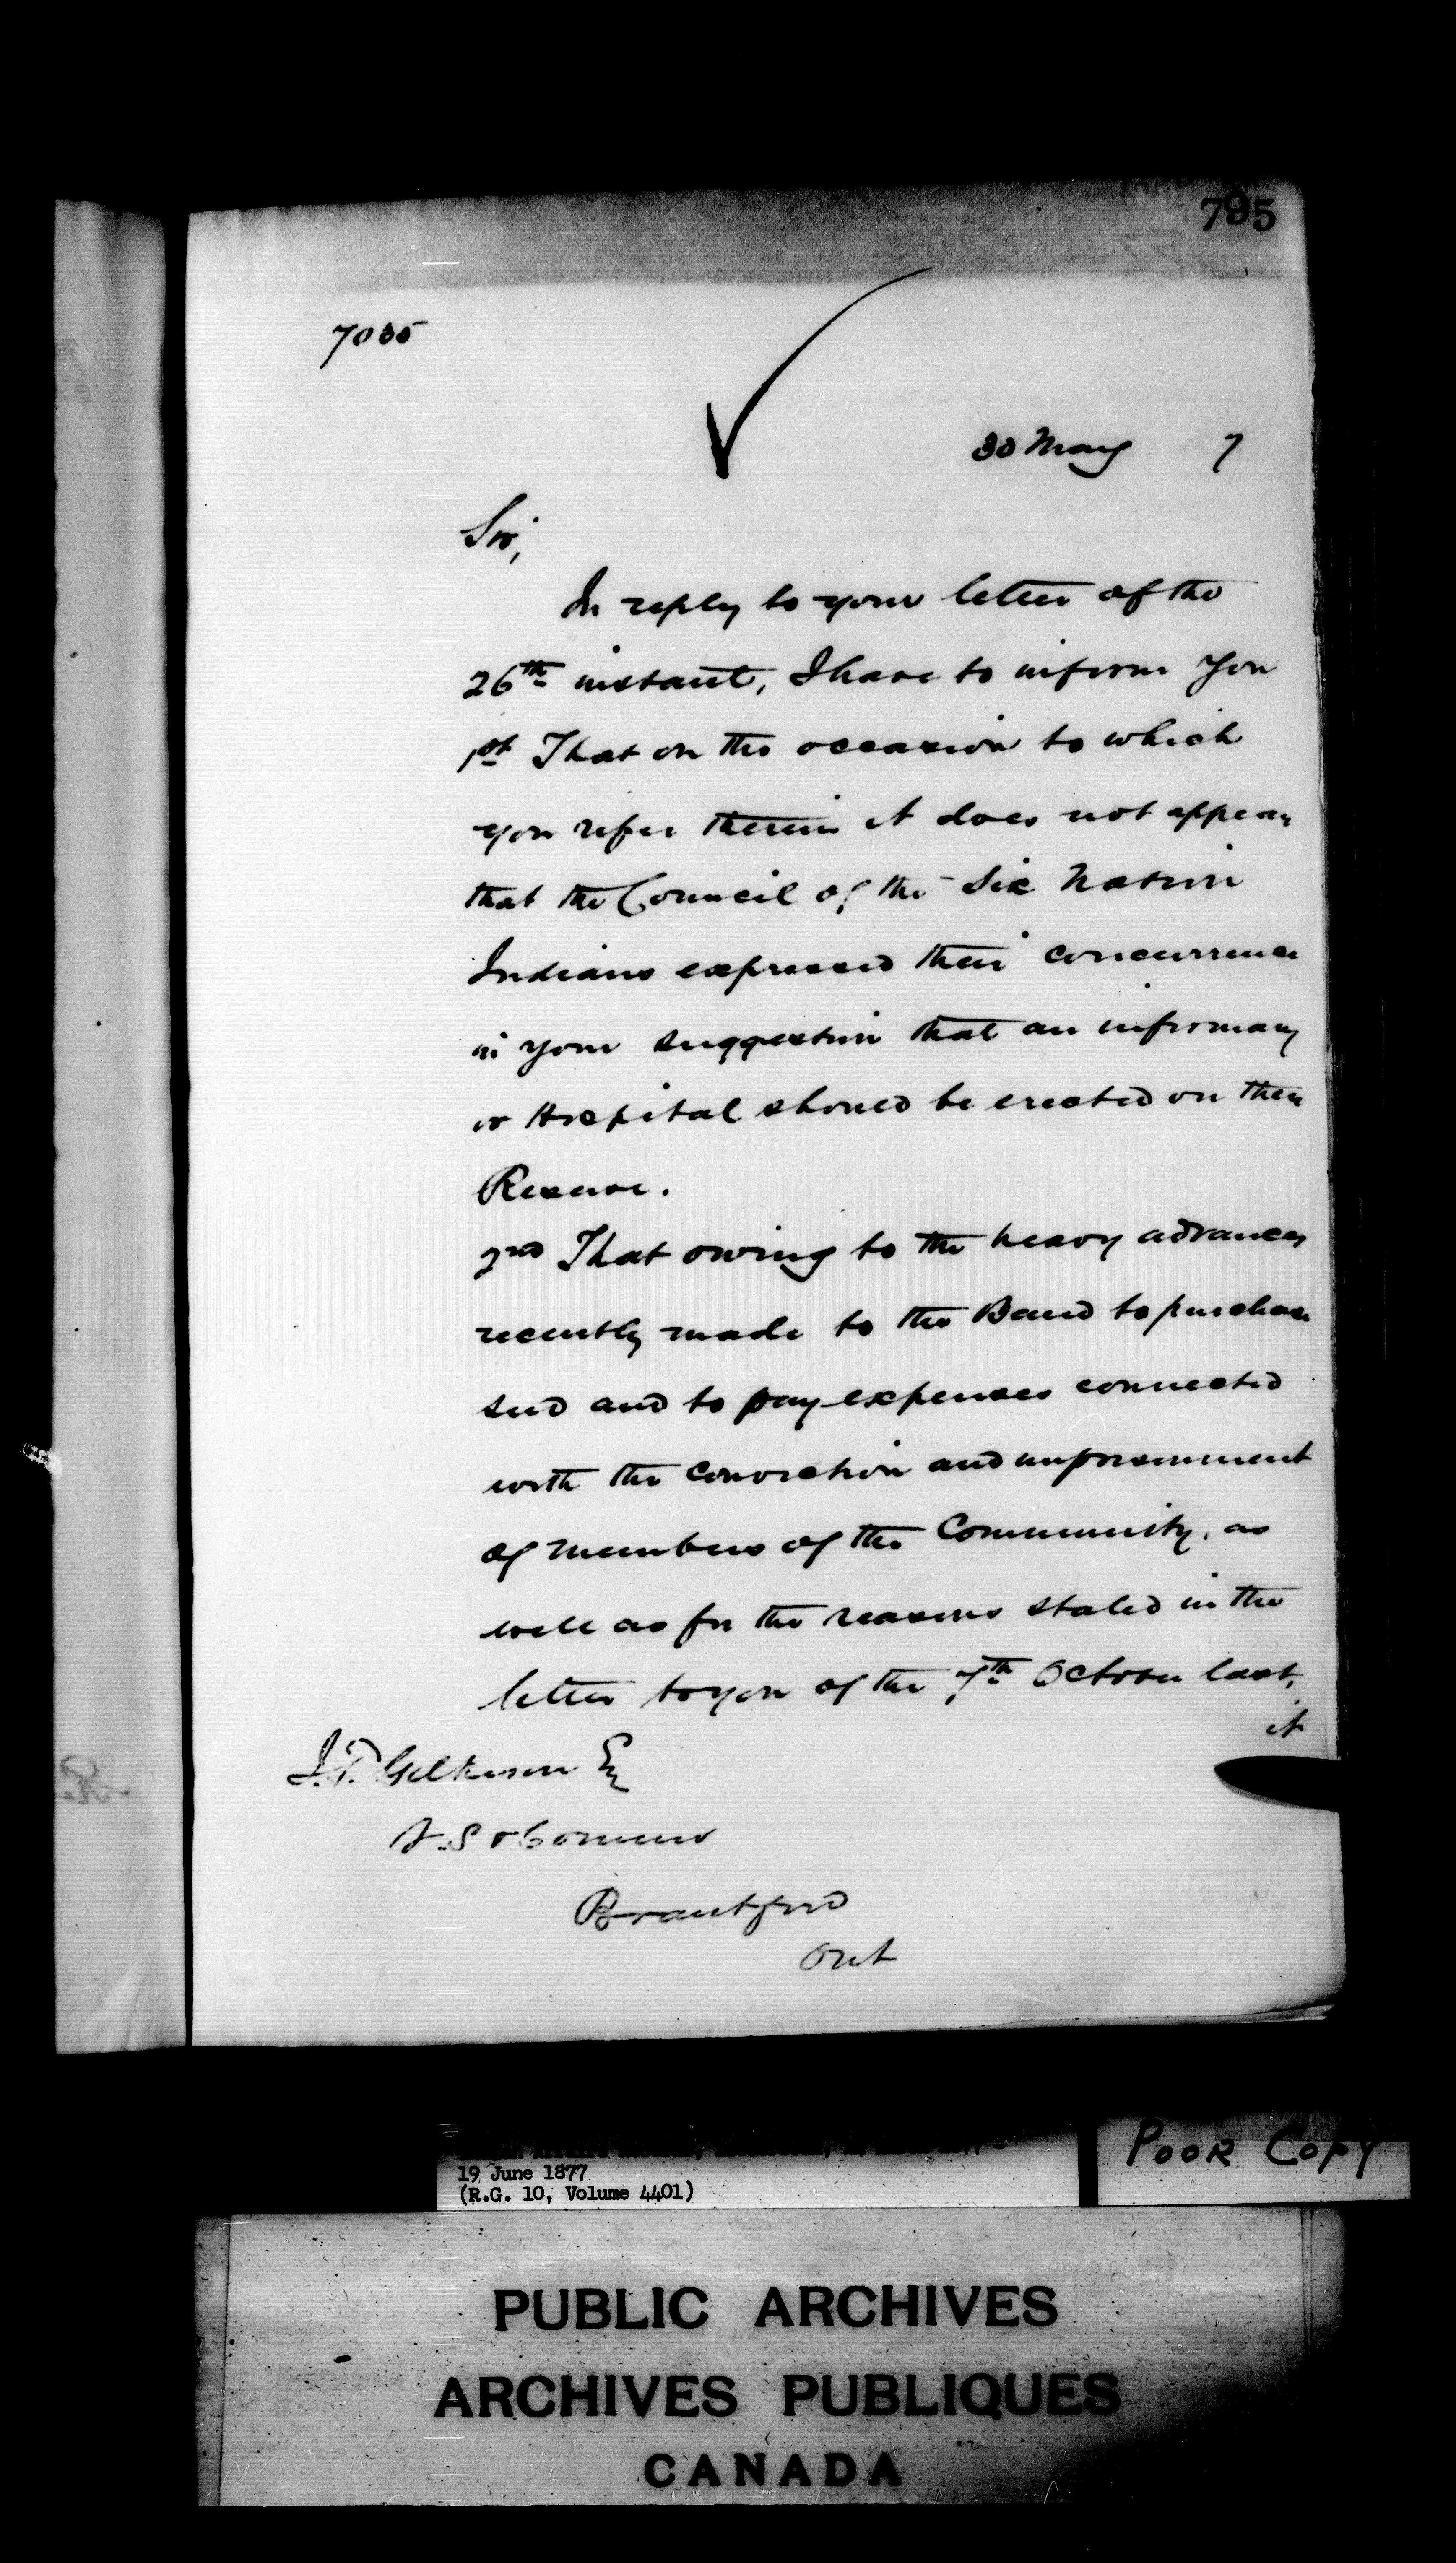 795
7035
30 May 7
Sir,
In reply to your letter of the
26th instant, I have to inform you
1st That on the occasion to which
you refer therein it does not appear
that the Council of the Six Nation
Indians expressed their concurrence
in your suggestion that an infirmary
or Hospital should be erected on their
Reserve.
2nd That owing to the heavy advances
recently made to the Band to purchase
seed and to pay expenses connected
with the conviction and imprisonment
of members of the Community, as
well as for the reasons stated in the
letter to you of the 7th October last,
it
J.T. Gilkison Esq
Brantford
Ont
19 June 1877
(R.G. 10, Volume 4401)
POOR COPY
PUBLIC ARCHIVES
ARCHIVES PUBLIQUES
CANADA